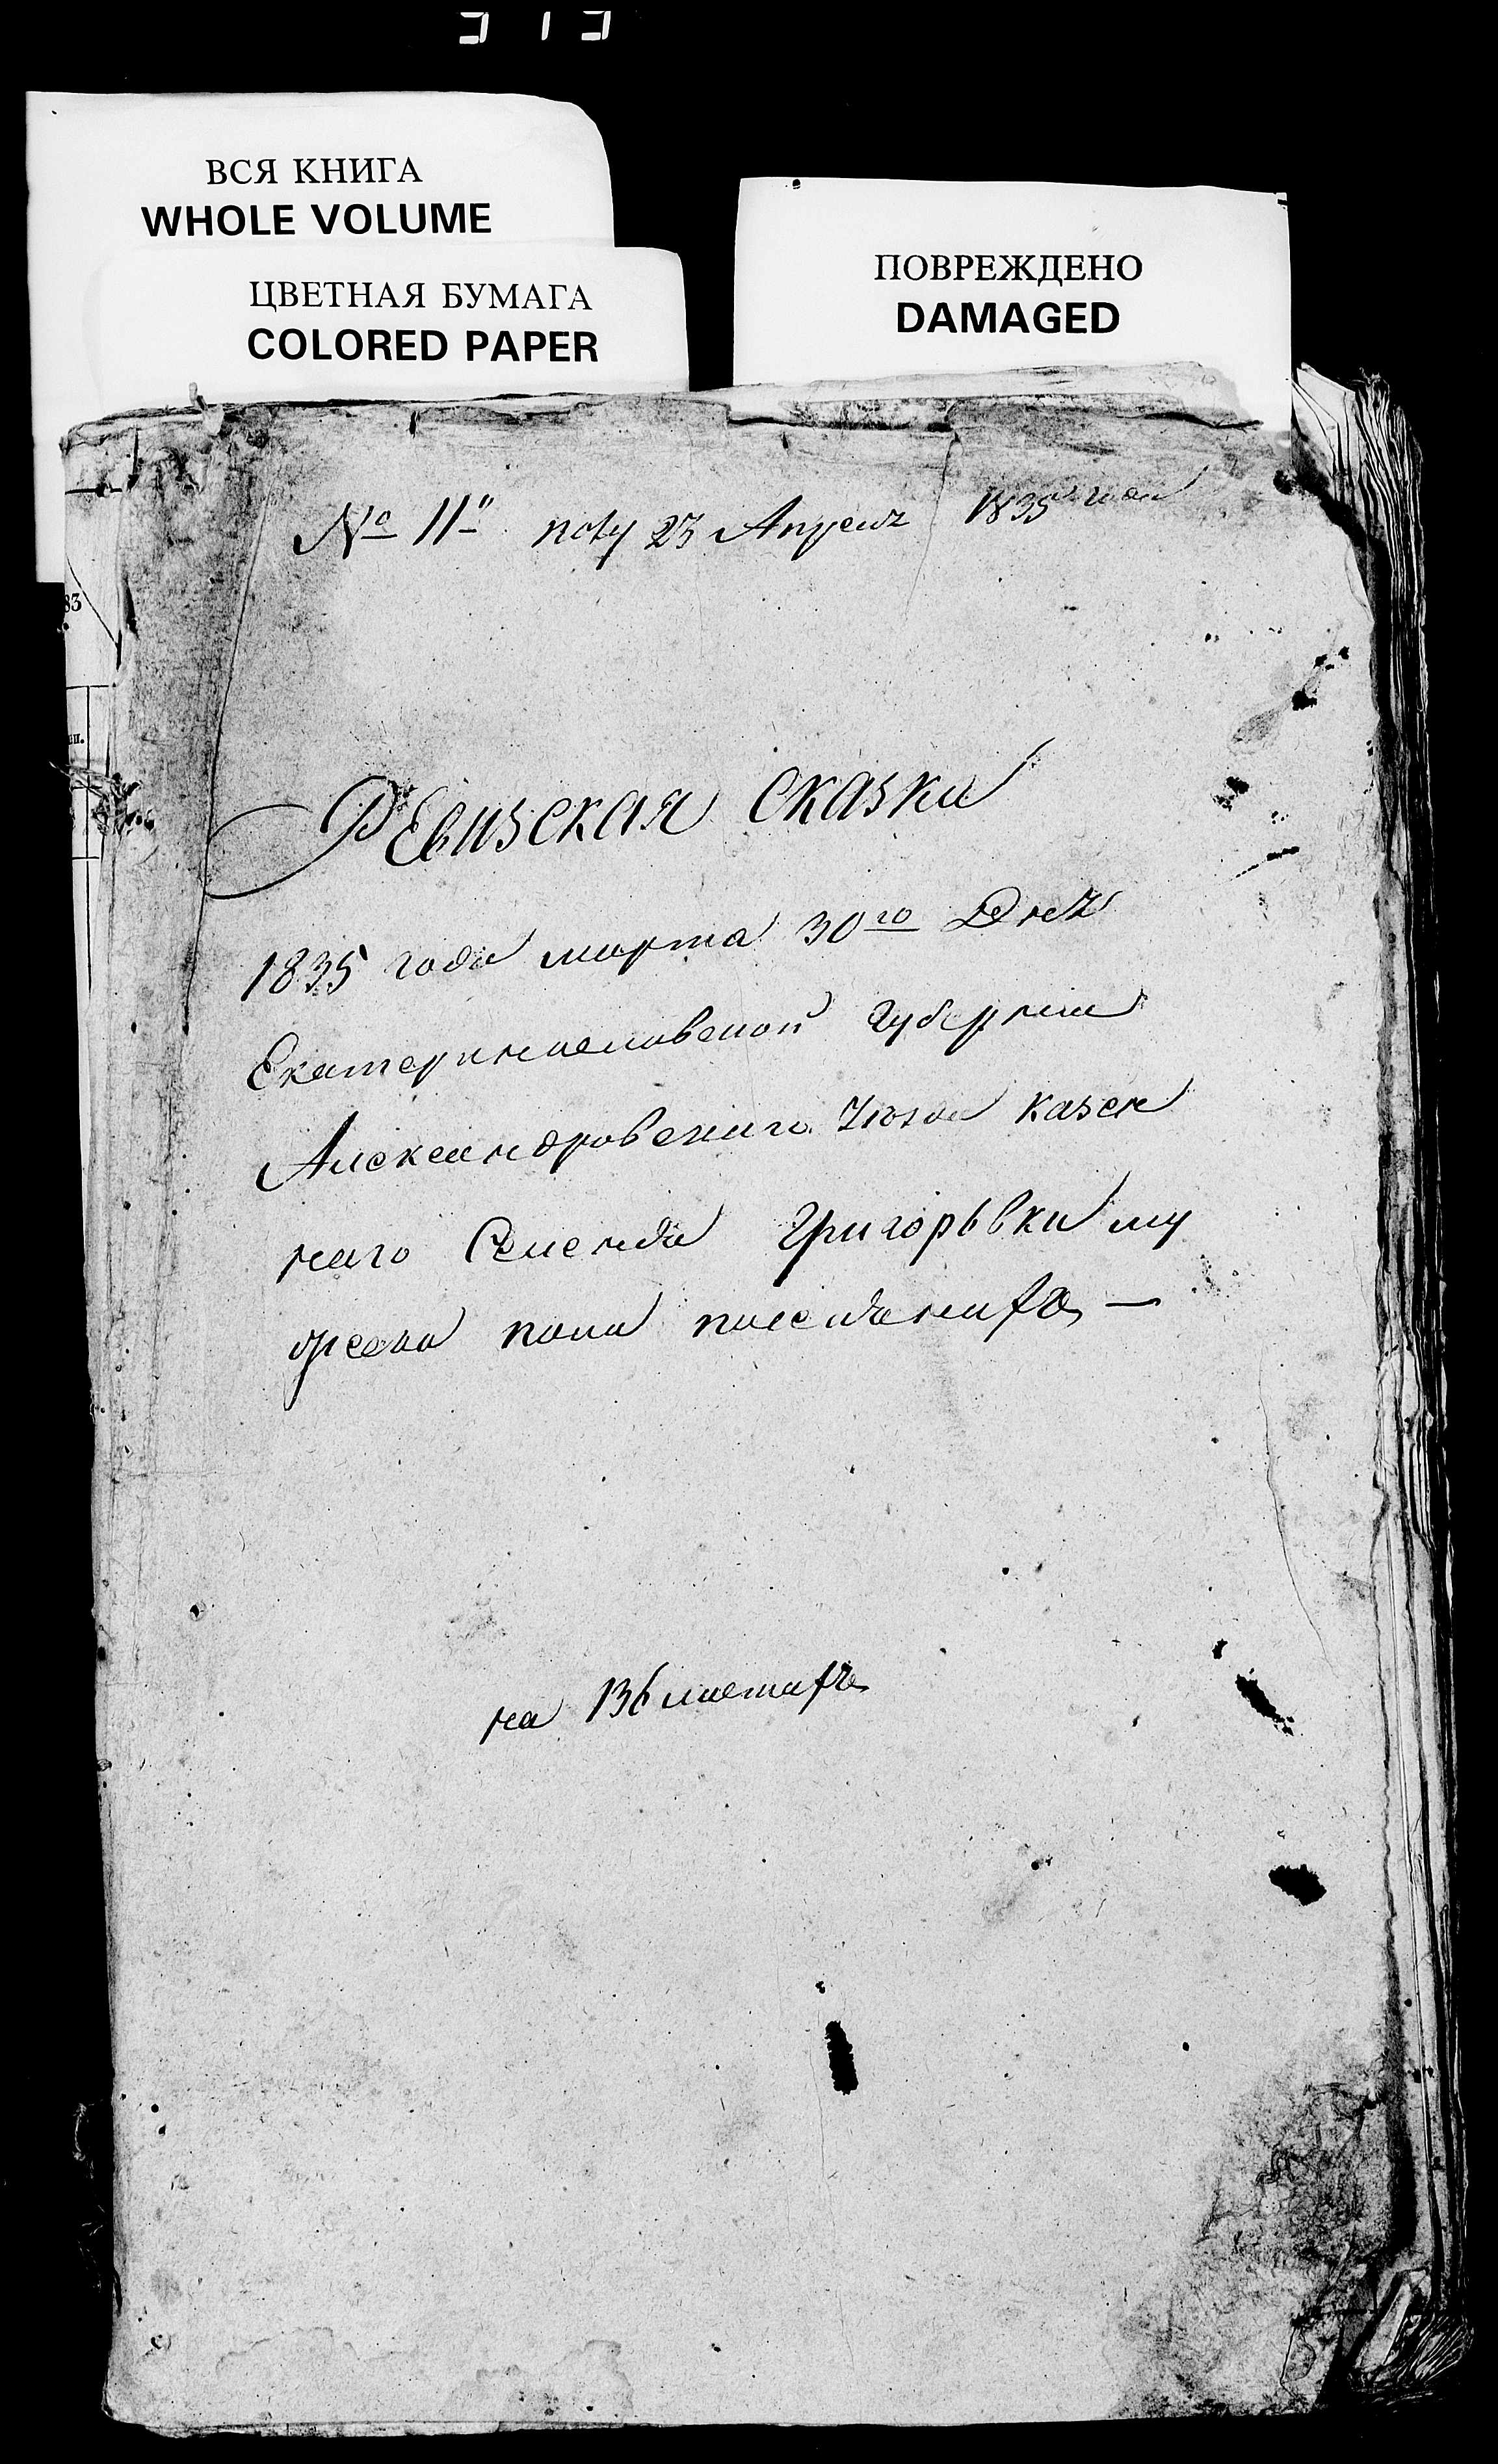 313
ВСЯ КНИГА
WHOLE VOLUME
ЦВЕТНАЯ БУМАГА
COLORED PAPER
ПОВРЕЖДЕНО
DAMAGED
83
№ 11й полу 23 Апреля 1835 года
Ревизская сказка
1835 года марта 30го Дня
Екатеринославской губернии
Александровского уезда казен
наго Селения Григорьвки му
жеска пола
на 136 листахъ